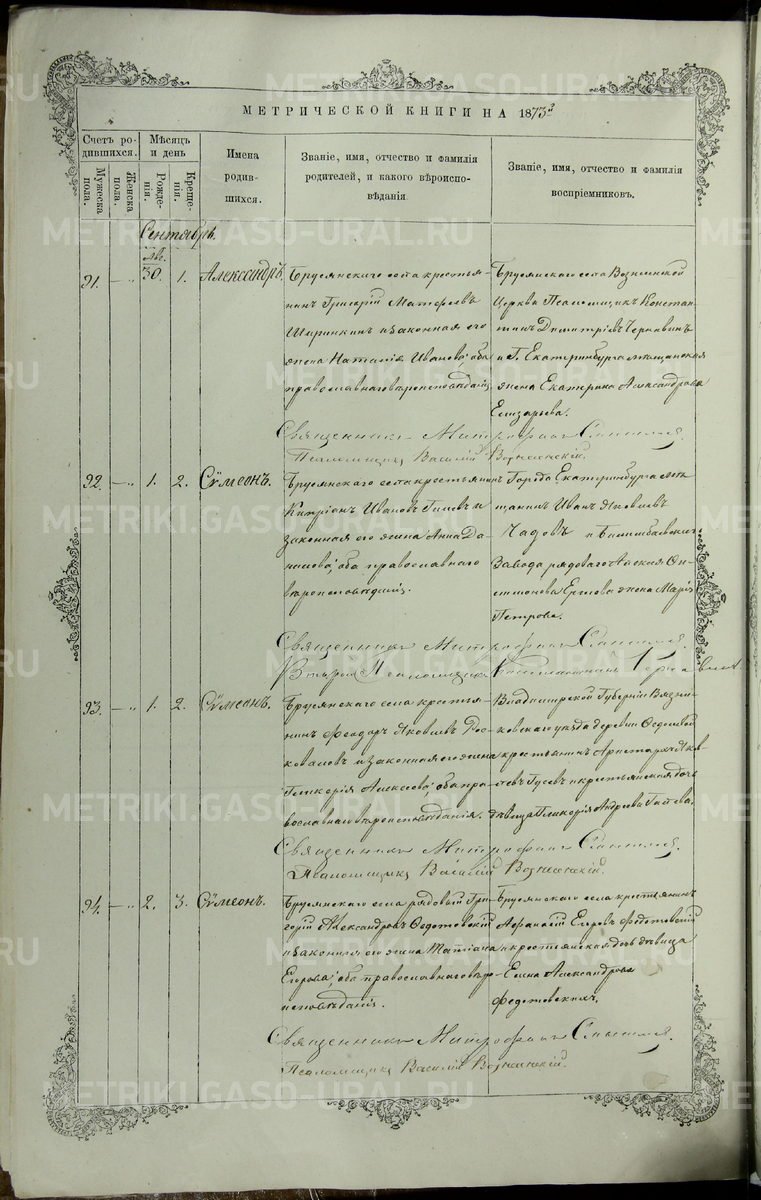 МЕТРИЧЕСКОЙ КНИГИ НА 1873й
Счетъ ро-
дившихся.
Мѣсяцъ
и день
Мужеска
пола.
Женска
пола.
Рожде-
нія.
Креще-
нія.
Имена
родив-
шихся.
Званіе, имя, отчество и фамилія
родителей, и какого вѣроиспо-
вѣданія
Званіе, имя, отчество и фамилія
воспріемниковъ.
Сентябрь.
Авг.
91. — „ 30. 1. Александръ.
Бруснянскаго села крестья-
нинъ Григорій Матфеевъ
Ширинкинъ и законная его
жена Наталія Иванова; оба
православнаго вѣроисповѣданія
Бруснянскаго села Вознесенской
Церкви Псаломщикъ Констан-
тинъ Димитріевъ Чернавинъ
и Г. Екатеринбурга мѣщанская
жена Екатерина Александрова
Елизарьева.
Священникъ Митрофанъ
Псаломщикъ Василій Вознесенскій.
92. — „ 1. 2. Сѵмеонъ.
Бруснянскаго села крестьянинъ
Кипріонъ Ивановъ Гилевъ и
законная его жена Анна Да-
нилова; оба православнаго
вѣроисповѣданія.
Города Екатеринбурга мѣ-
щанинъ Иванъ Яковлевъ
Чадовъ и Билимбаевскаго
Завода рядоваго
жена Марія
Петрова.
Священникъ Митрофанъ
Псаломщикъ Константинъ Чернавинъ
93. — „ 1. 2. Сѵмеонъ.
Бруснянскаго села крестья-
нинъ Феодоръ Яковлевъ Рос-
коваловъ и законная его жена
Гликерія Алексеева; оба пра-
вославнаго вѣроисповѣданія.
Владимірской Губерніи Вязни-
ковскаго уѣзда деревни
крестьянинъ Аристархъ Яков-
левъ Гусевъ и крестьянская дочь
дѣвица Гликерія Андреева
Священникъ Митрофанъ
Псаломщикъ Василій Вознесенскій.
94. — „ 2. 3. Сѵмеонъ.
Бруснянскаго села рядовый Гри-
горій Александровъ Федотовскій
и законная его жена Татіана
Егорова; оба православнаго вѣро-
исповѣданія.
Бруснянскаго села крестьянинъ
Афанасій Егоровъ Федотовскій
и крестьянская дочь дѣвица
Елена Александрова
Федотовскихъ.
Священникъ Митрофанъ
Псаломщикъ Василій Вознесенскій.
METRIKI.GASO-URAL.RU